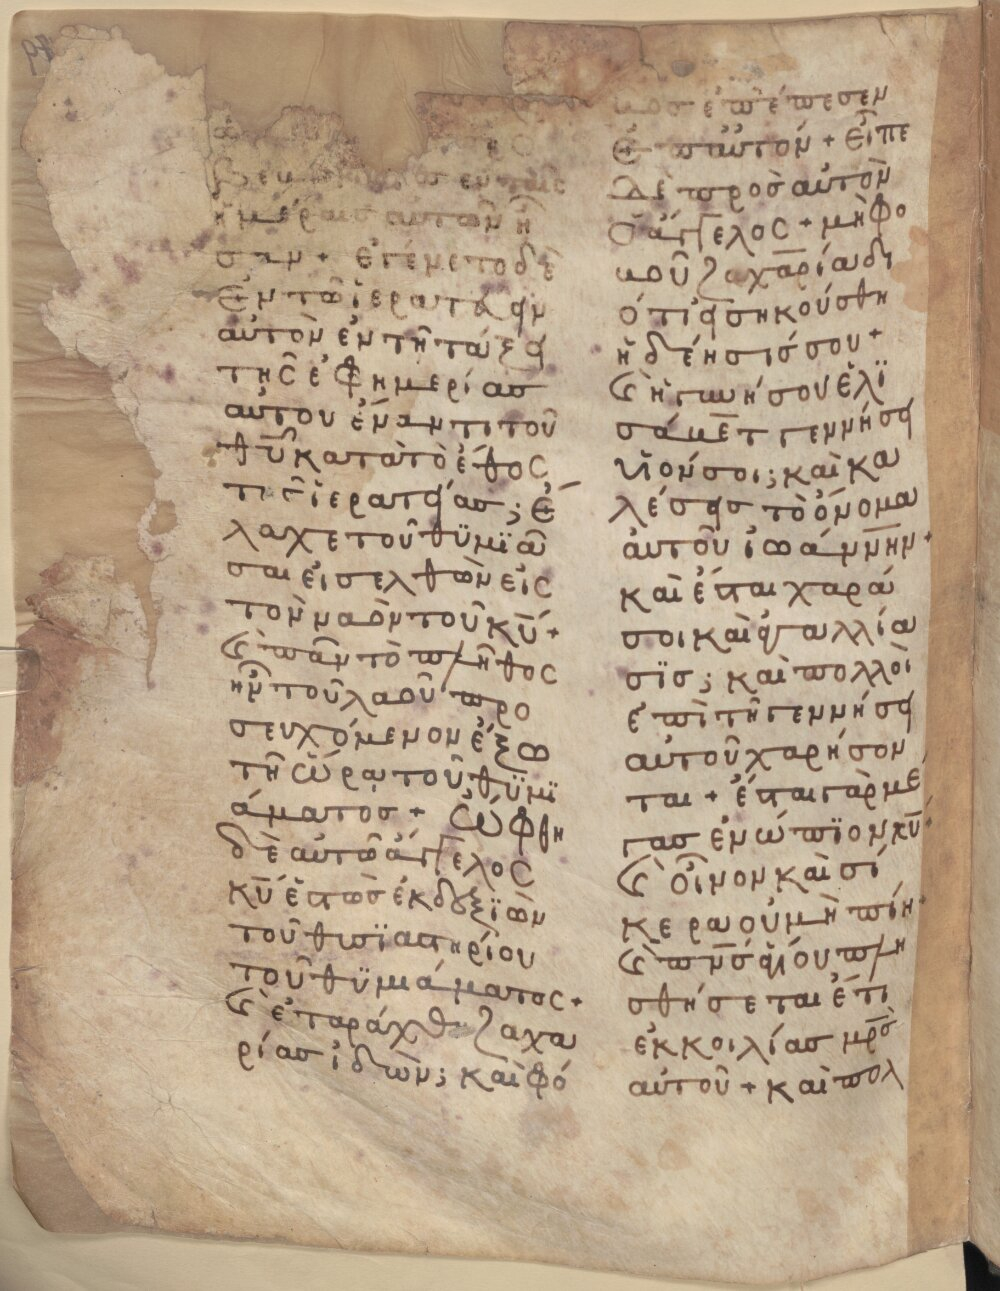 ἡμέραις αὐτῶν ἦ
σαν + Ἐγένετο δὲ
Ἐν τῶ ἱερατεύειν
αὐτὸν ἐν τῆ τάξει
τῆς ἐφημερίας
αὐτου ἐναντι τοῦ
θῡ κατὰ τὸ ἔθος
τῆς ἱερατείας ; Ἐ
λαχε τοῦ θϋμϊᾶ
σαι εἰσελθὼν εἰς
τὸν ναὸν τοῦ κῡ +
Ϛ πᾶν τὸ πλῆθος
ἦν τοῦ λαοῦ προ
σευχόμενον ἔξω
τῆ ὥρα τοῦ θϋμϊ
άματος + Ὤφθη
δὲ αὐτῶ ἄγγελος
κῡ ἑστὼς ἐκ δεξϊῶν
τοῦ θυσϊαστηρίου
τοῦ θϋμιάματος +
Ϛ ἐταράχθη ζαχα
ρίας ἰδὼν ; καὶ φό
βος ἐπέπεσεν
Ἐπ αὐτόν + Εἶπε
Δὲ πρὸς αὐτὸν
Ὁ ἄγγελος + μὴ φο
βοῦ ζαχαρία δι
ότι εἰσηκούσθη
ἡ δέησίς σου +
Ϛ ἡ γυνή σου ἐλϊ
σάβετ γεννήσει
υἱόν σοι ; καὶ κα
λέσεις τὸ ὄνομα
αὐτοῦ ἰωάννην +
καὶ ἔσται χαρά
σοι καὶ ἀγαλλία
σϊς ; καὶ πολλοὶ
ἐπὶ τῆ γεννήσει
αὐτοῦ χαρήσον
ται + ἔσται γὰρ μέ
γας ἐνώπϊον κῡ +
Ϛ οἶνον καὶ σί
κερα οὐ μὴ πίη +
Ϛ πν̅σ ἁγίου πλη
σθήσεται ἔτι
ἐκ κοιλίας μρ̅σ
αὐτοῦ + καὶ πολ